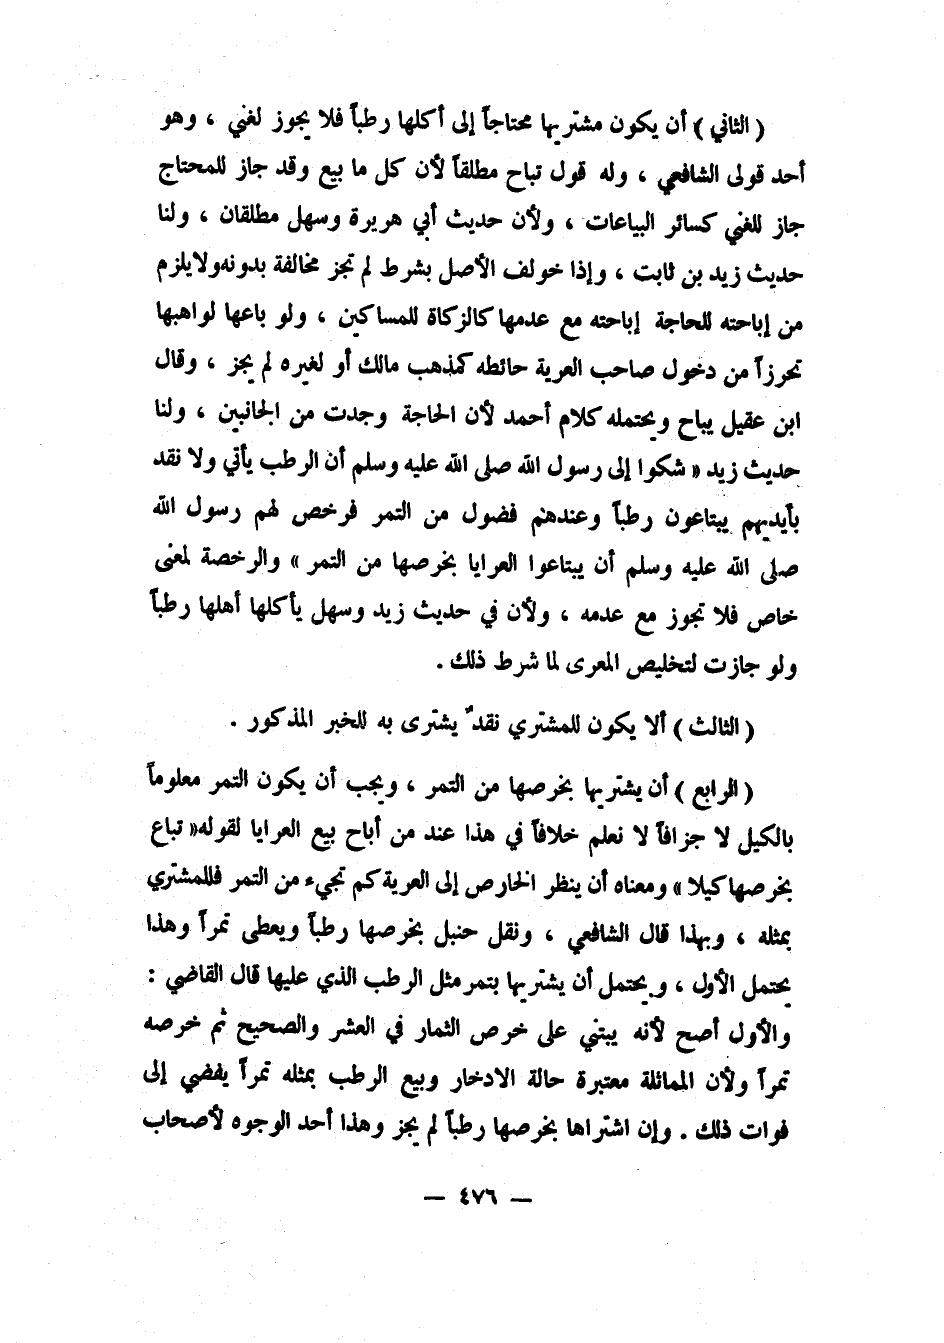 ( الثاني ) أن يكون مشتريها محتاجاً إلى أكلها رطباً فلا يجوز لغني ، وهو
أحد قولى الشافعي ، وله قول تباح مطلقاً لأن كل ما بيع وقد جاز للمحتاج
جاز للغني كسائر البياعات ، ولأن حديث أبي هريرة وسهل مطلقان ، ولنا
حديث زيد بن ثابت ، وإذا خولف الأصل بشرط لم تجز مخالفة بدونه ولا يلزم
من إباحته للحاجة إباحته مع عدمها كالزكاة للمساكين ، ولو باعها لواهبها
تحرزاً من دخول صاحب العرية حائطه كمذهب مالك أو لغيره لم يجز ، وقال
ابن عقيل يباح ويحتمله كلام أحمد لأن الحاجة وجدت من الجانبين ، ولنا
حديث زيد « شكوا إلى رسول الله صلى الله عليه وسلم أن الرطب يأتي ولا نقد
بأيديهم يبتاعون رطباً وعندهم فضول من التمر فرخص لهم رسول الله
صلى الله عليه وسلم أن يبتاعوا العرايا بخرصها من التمر » والرخصة لمعنى
خاص فلا تجوز مع عدمه ، ولأن في حديث زيد وسهل يأكلها أهلها رطباً
ولو جازت لتخليص المعرى لما شرط ذلك .
( الثالث ) ألا يكون للمشتري نقدٌ يشترى به للخبر المذكور .
( الرابع ) أن يشتريها بخرصها من التمر ، ويجب أن يكون التمر معلوماً
بالكيل لا جزافاً لا نعلم خلافاً في هذا عند من أباح بيع العرايا لقوله « تباع
بخرصها كيلا » ومعناه أن ينظر الخارص إلى العرية كم تجيء من التمر فللمشتري
بمثله ، وبهذا قال الشافعي ، ونقل حنبل بخرصها رطباً ويعطى تمراً وهذا
يحتمل الأول ، ويحتمل أن يشتريها بتمر مثل الرطب الذي عليها قال القاضي :
والأول أصح لأنه يبتني على خرص الثمار في العشر والصحيح ثم خرصه
تمراً ولأن المماثلة معتبرة حالة الادخار وبيع الرطب بمثله تمراً يفضي إلى
فوات ذلك . وإن اشتراها بخرصها رطباً لم يجز وهذا أحد الوجوه لأصحاب
— ٤٧٦ —